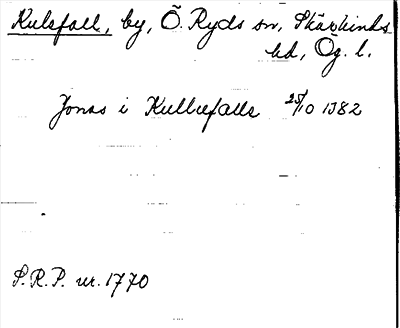 Kulsfall, by, Ö. Ryds sn, Skärkinds
hd, Ög. l.
Jonas i Kullufalle 25/10 1382
S.R.P. nr. 1770